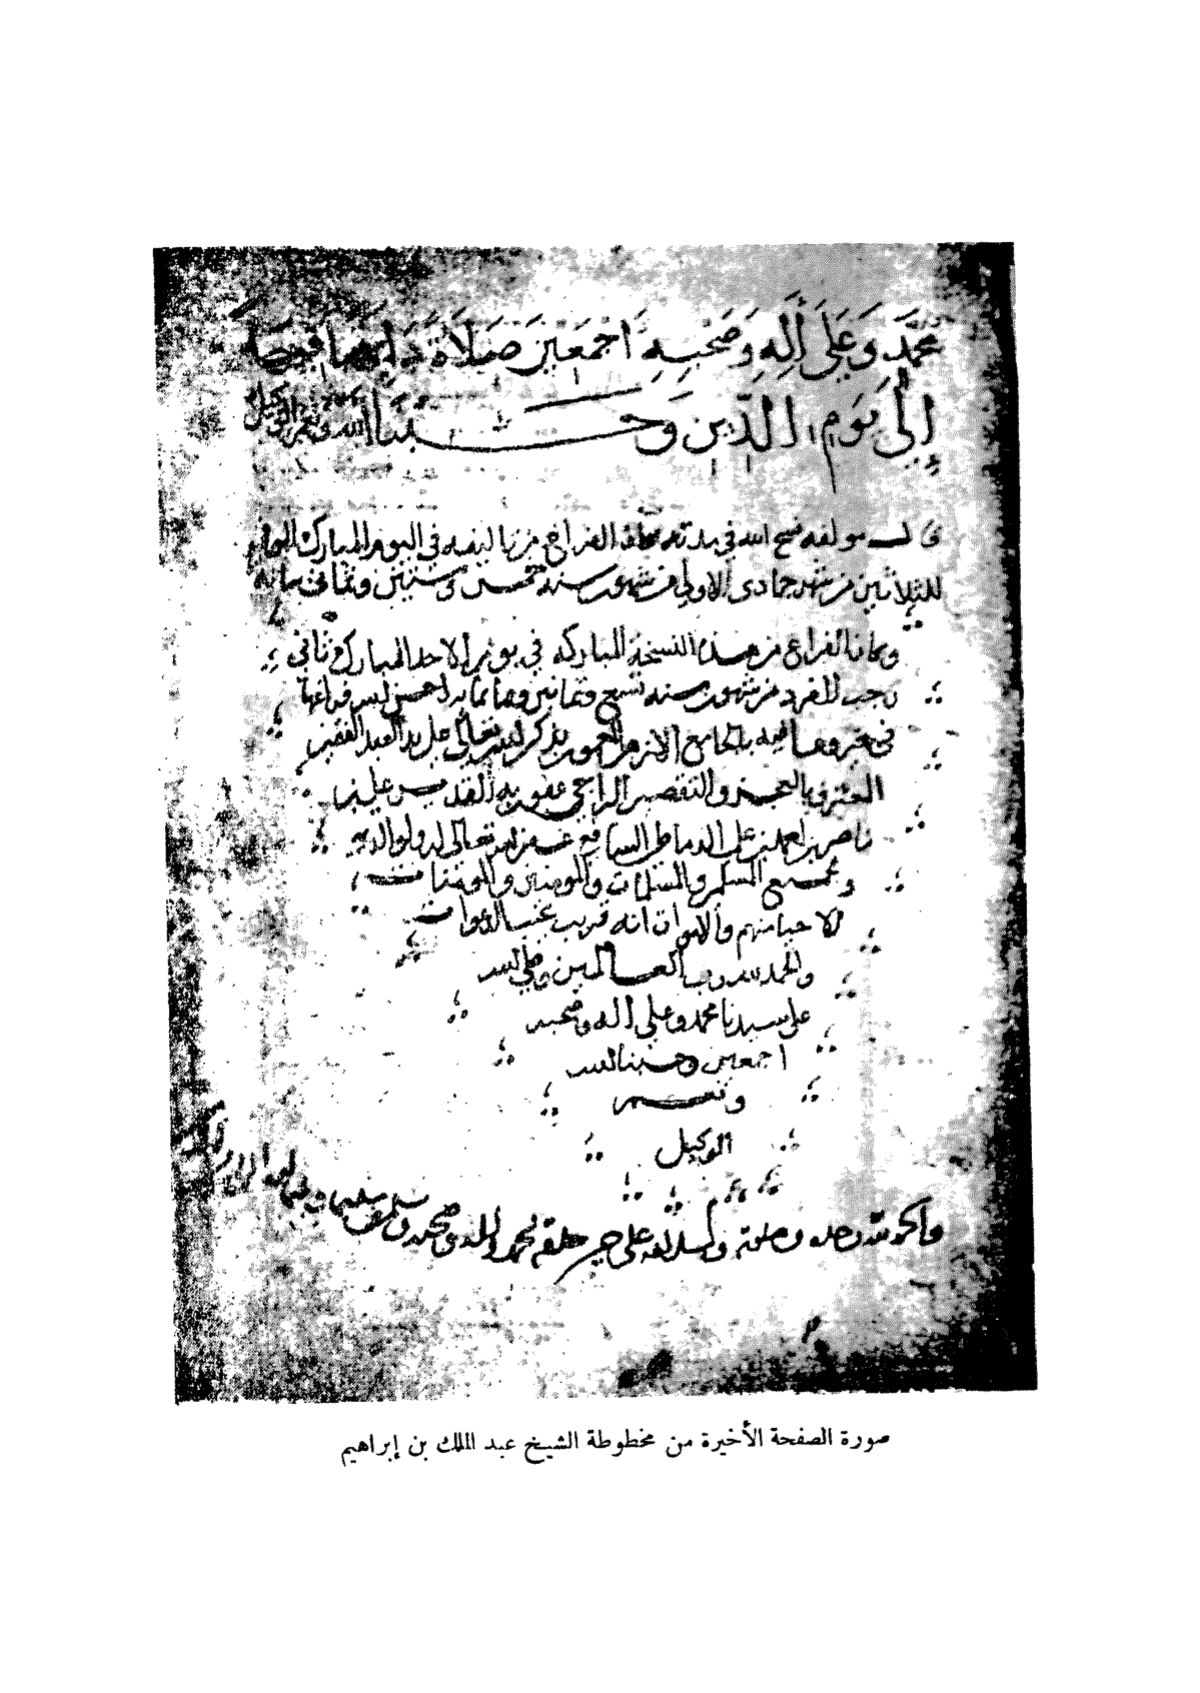 محمد وعلى اله وصحبه اجمعين صلاة دايمة
إلى يوم الدين وحسبنا الله ونعم الوكيل
قال مولفه فسح الله في مدته الفراغ من تاليفه في اليوم المبارك
للثلاثين من شهر جمادى الاولى من شهور سنه خمس وستين وثماني مايه
وكان الفراغ من هذه النسخة المباركه في يوم الاحد المبارك ثاني
رجب الفرد من شهور سنه تسع وثمانين وثمانمايه احسن الله
في خير وعافيه بالجامع الازهر المعمور بذكر الله تعالى على يد العبد الفقير
المعترف بالعجز والتقصير الراجي عفو ربه القدير علي بن
ناصر بن علي الدماطي الشافعي غفر الله تعالى له ولوالديه
وجميع المسلمين والمسلمات والمومنين والمومنات
الاحيا منهم والاموات انه قريب مجيب الدعوات
والحمد لله رب العالمين وصلى الله
على سيدنا محمد وعلى اله وصحبه
اجمعين وحسبنا الله
ونعم
الوكيل
والحمد لله وحده وصلوته وسلامه على خير خلقه محمد واله وصحبه وسلم
صورة الصفحة الأخيرة من مخطوطة الشيخ عبد الملك بن إبراهيم